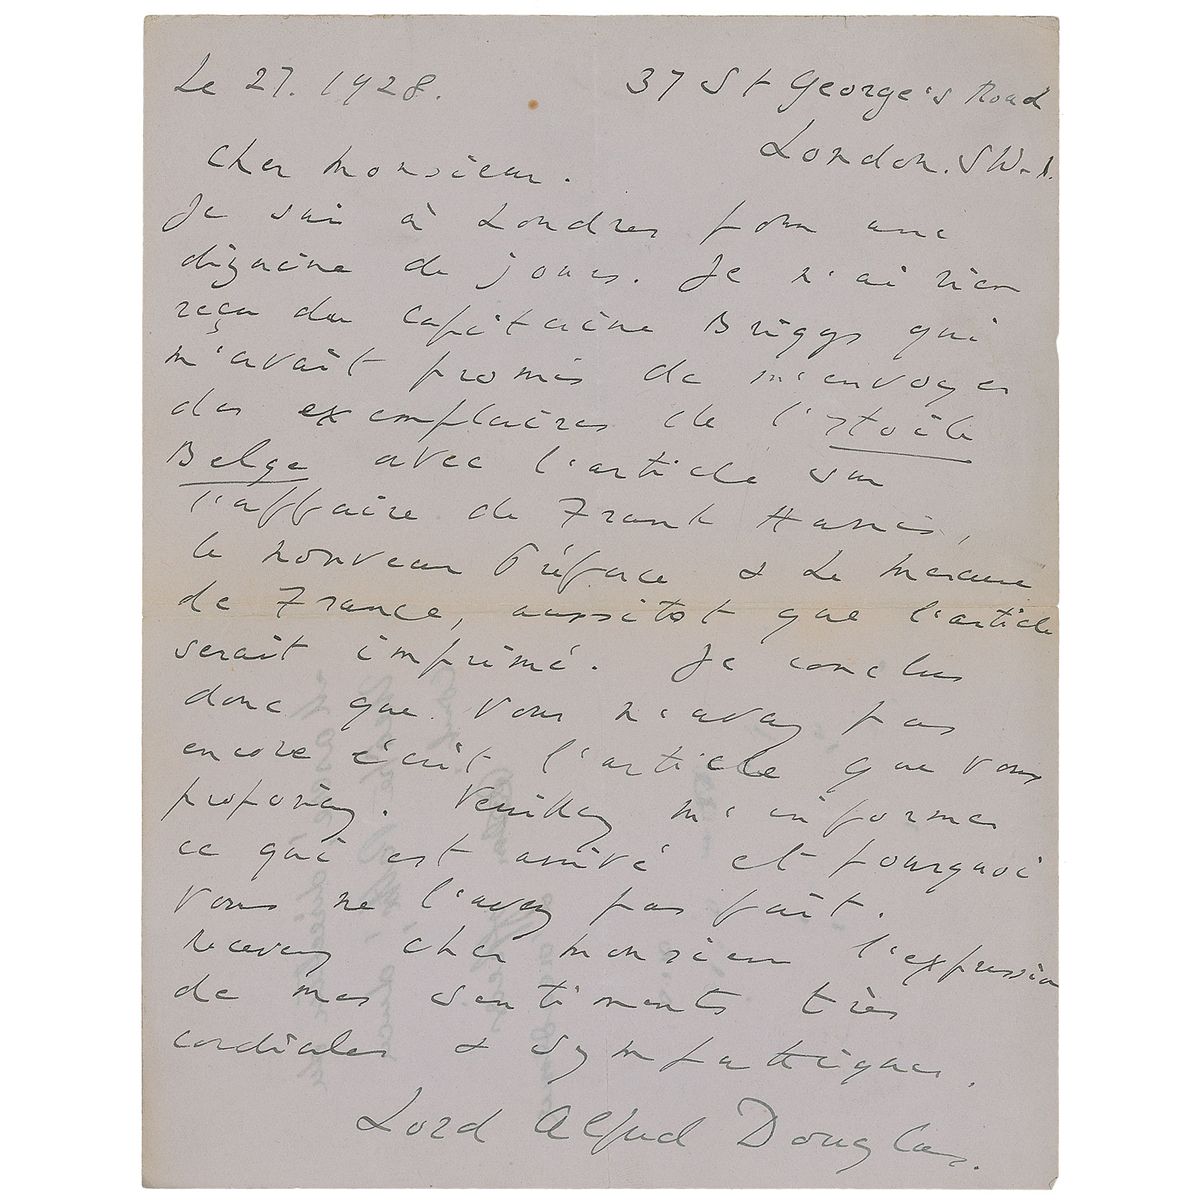 Le 27. 1928.
37 St George's Road
London. SW-1.
Cher Monsieur.
Je suis à Londres pour une
dizaine de jours. Je n'ai rien
reçu du capitaine Briggs qui
m'avait promis de m'envoyer
des exemplaires de l'Etoile
Belge avec l'article sur
l'affaire de Frank Harris,
le nouveau Préface & Le Mercure
de France, aussitot que l'article
serait imprimé. Je conclus
donc que vous n'avez pas
encore écrit l'article que vous
proposiez. Veuillez m'informer
ce qui est arrivé et pourquoi
vous ne l'avez pas fait.
Recevez cher monsieur l'expression
de mes sentiments très
cordiales & sympathiques.
Lord Alfred Douglas.